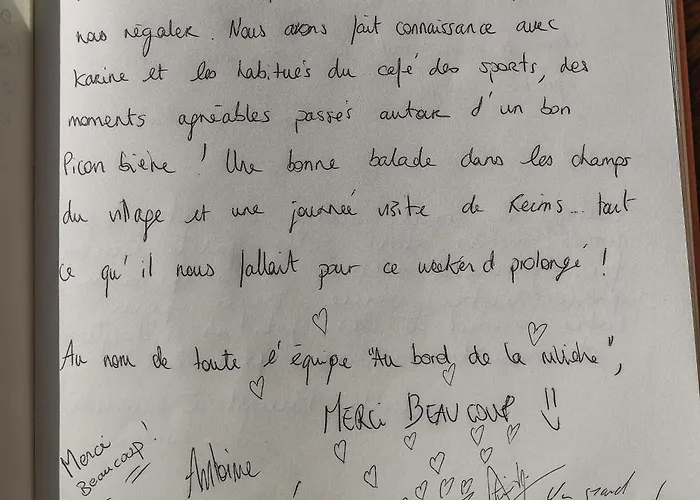 nous régaler. Nous avons fait connaissance avec
Karine et les habitués du café des sports, des
moments agréables passés autour d'un bon
Picon bière ! Une bonne balade dans les champs
du village et une journée visite de Reims... tout
ce qu'il nous fallait pour ce weekend prolongé !
Au nom de toute l'équipe "Au bord de la",
MERCI BEAUCOUP !!
Merci
Beaucoup !
Antoine
Un grand